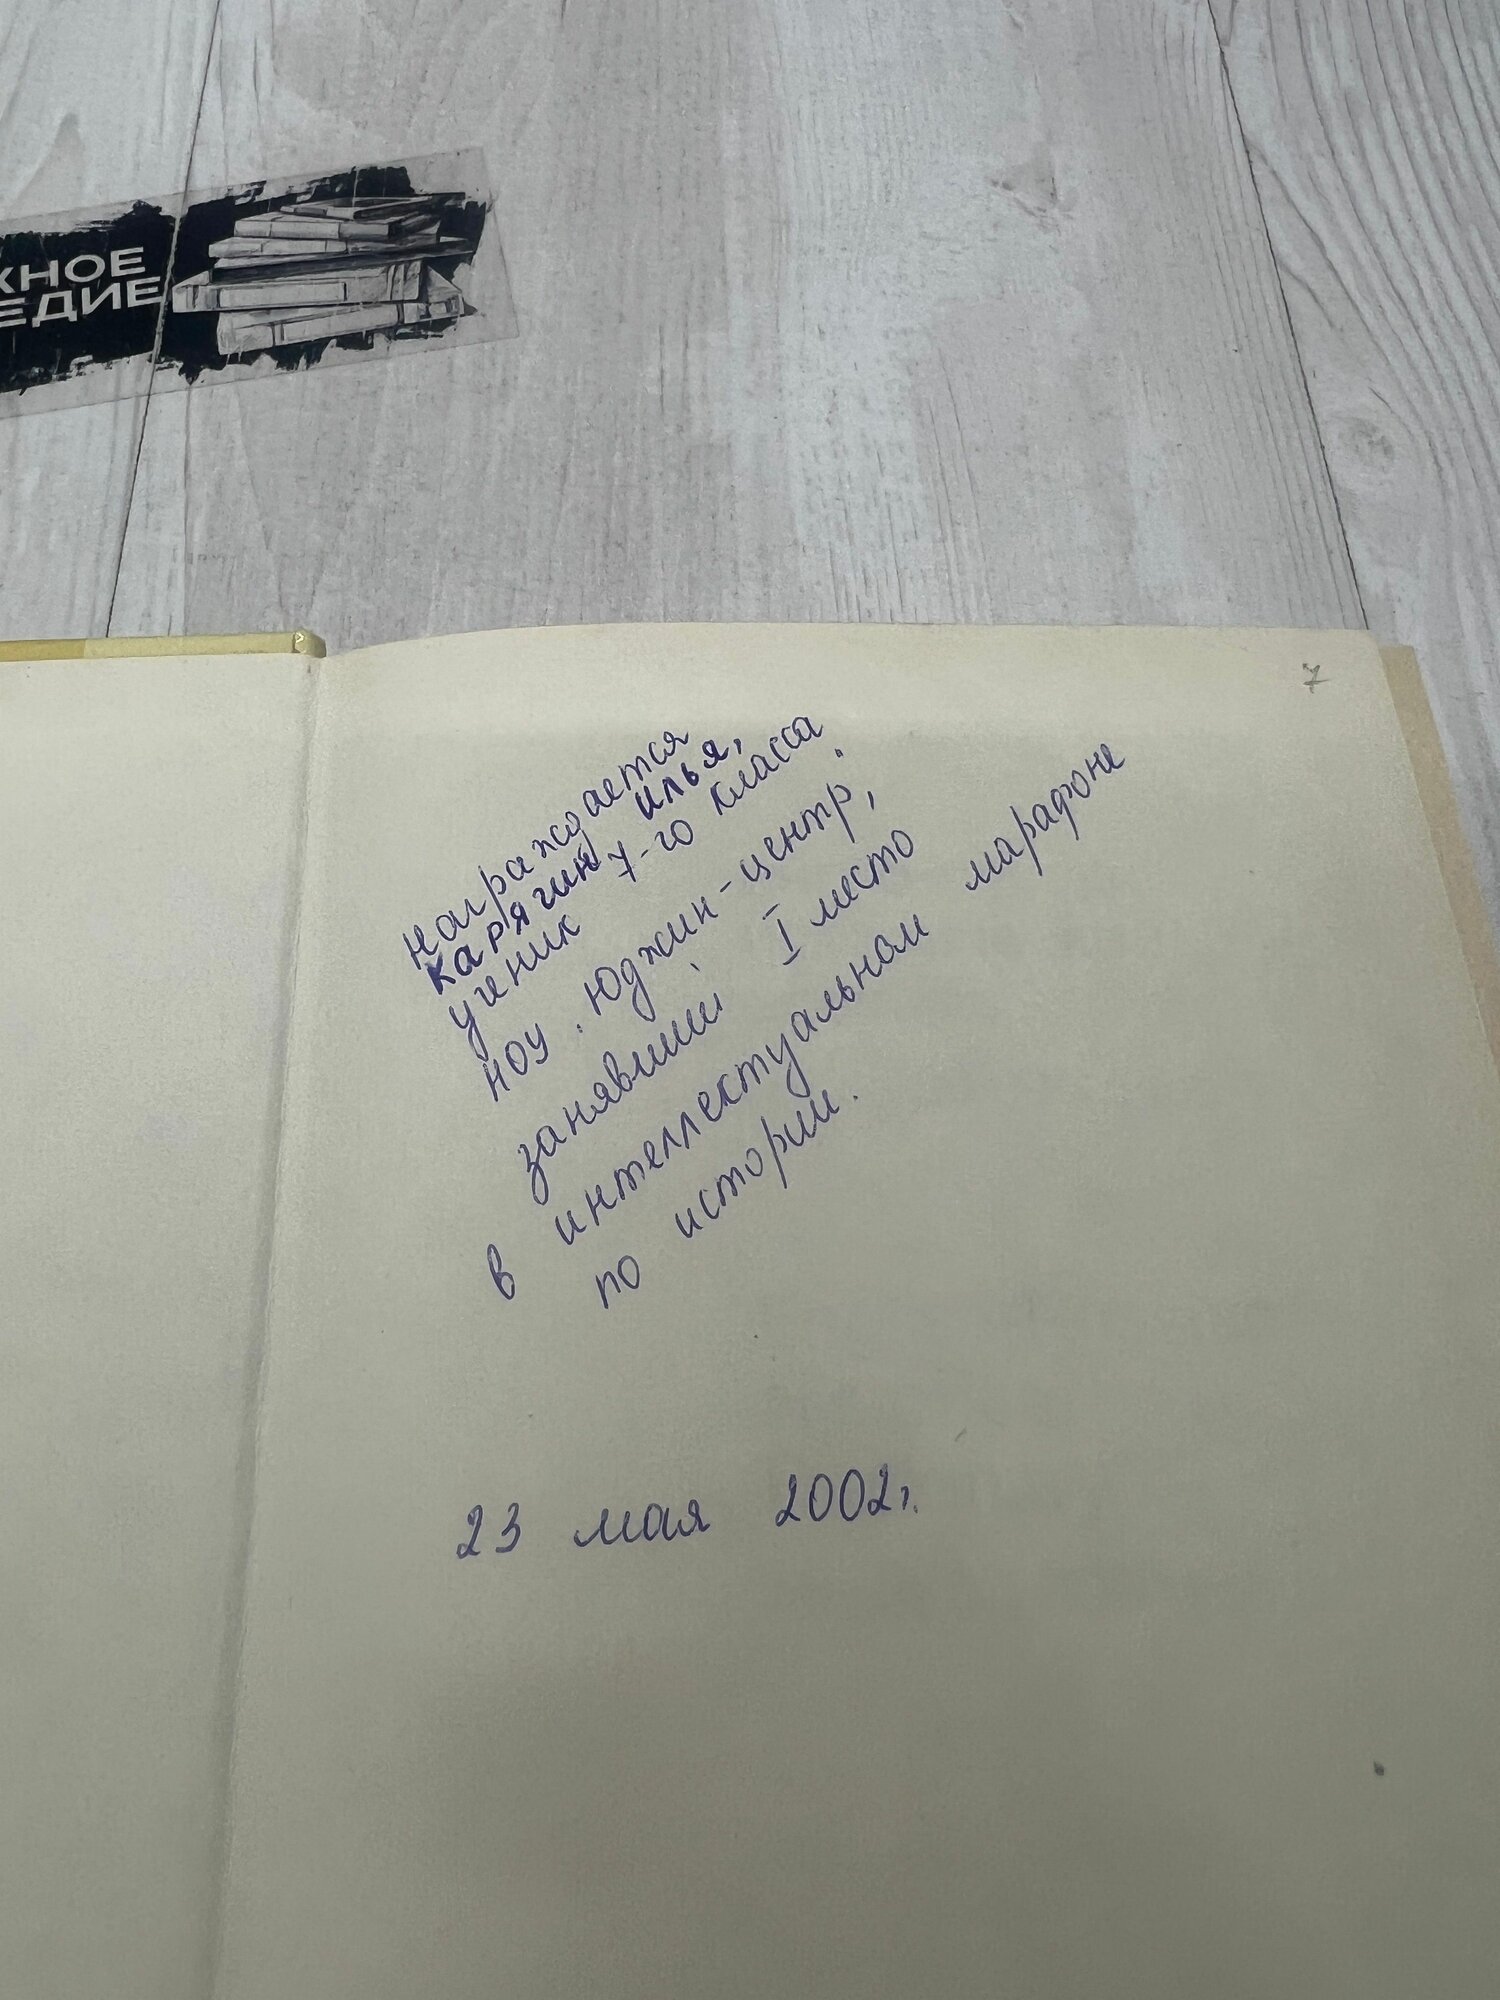 ХНОЕ
ЕДИЕ
7
награждается
Карягин Илья,
ученик 7-го класса
НОУ "Юджин-центр",
занявший I место
в интеллектуальном марафоне
по истории.
23 мая 2002г.